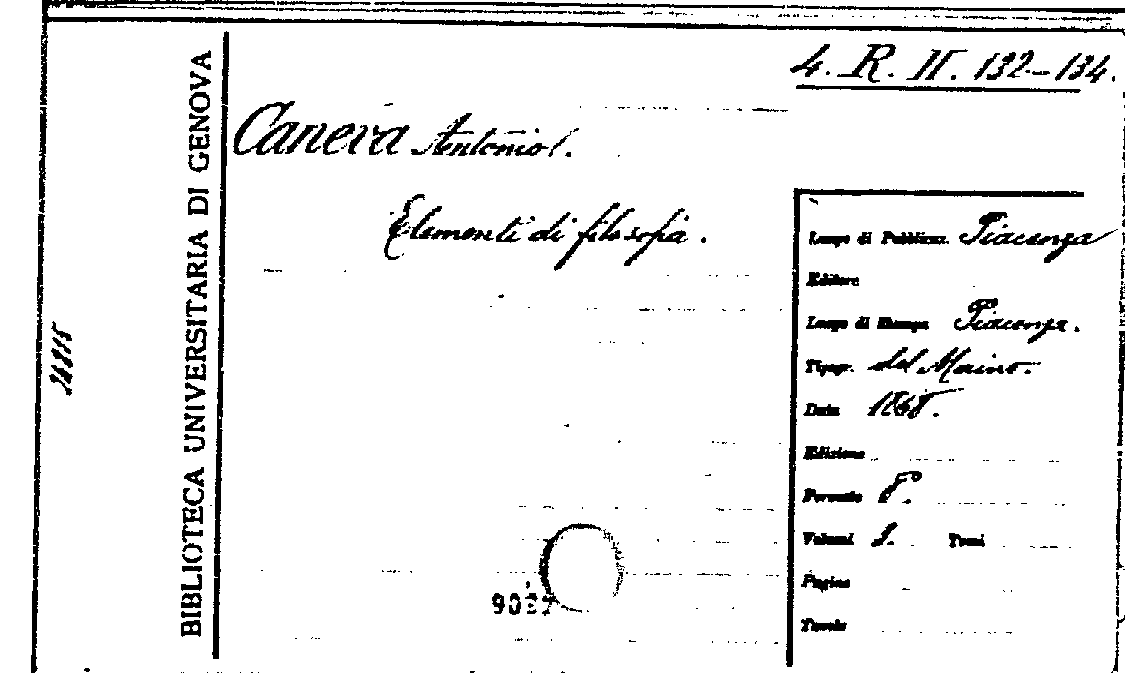 4. R. II. 132-134.
BIBLIOTECA UNIVERSITARIA DI GENOVA
Canera Antonio.
Elementi di filosofia.
Luogo di Pubblicaz. Piacenza
Editore
Luogo di Stampa Piacenza.
Tipogr. del Maino.
Data 1868.
Edizione
Formato 8°.
Volumi Tomi
Pagine
Tavole